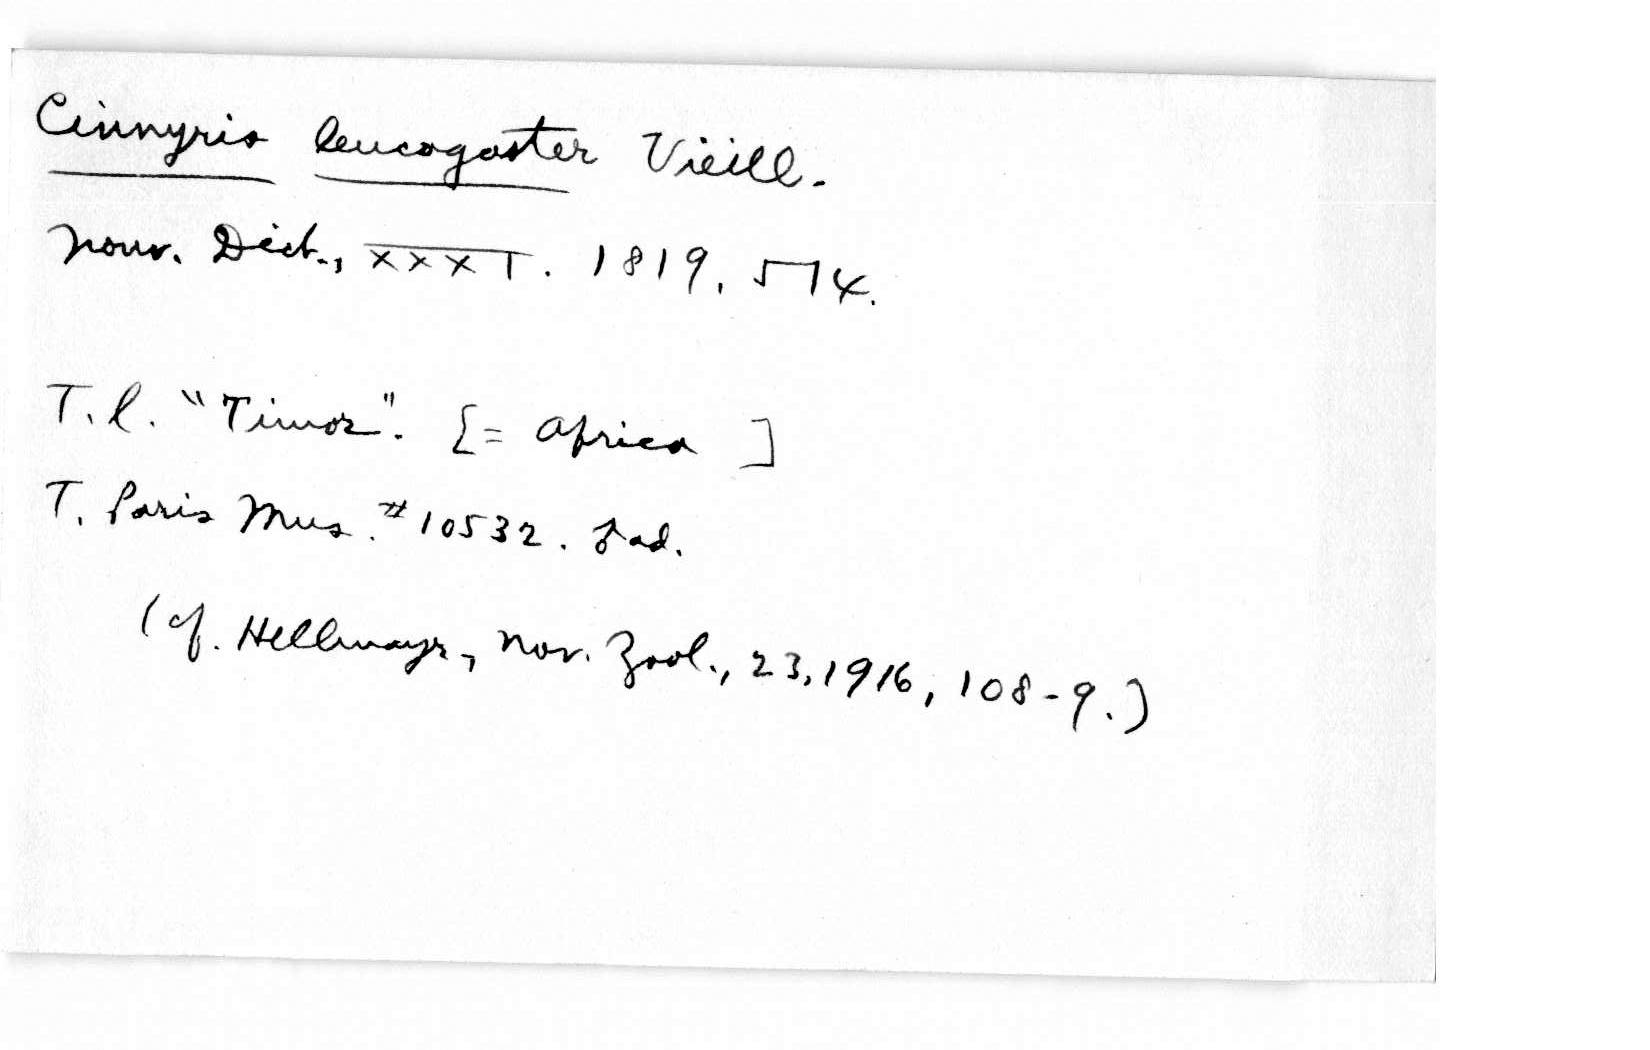 Cinnyris leucogaster Vieill.
Nouv. Dict., XXXI. 1819, 514.
T.l. "Timor". [= Africa ]
T. Paris Mus. #10532. ad.
(cf. Hellmayr, Nov. Zool., 23, 1916, 108-9.)